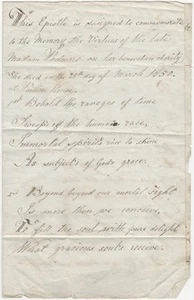 This Epistle is designed to commemorate
to the memory the Virtues of the late
Madam on her benevolence charity
She died on the 20th day of March 1850.
at House
1st Behold the ravages of time
Sweeps off the human race,
Immortal spirits rise to shine
As subjects of Gods grace.
2nd Beyond beyond our mortal sight
Is more than we conceive,
To fill the soul with pure delight
What gracious souls receive.